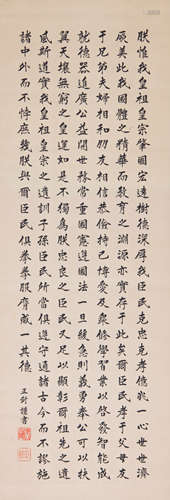 朕惟我皇祖皇宗肇國宏遠樹德深厚我臣民克忠克孝億兆一心世世濟
厥美此我國體之精華而教育之淵源亦實存乎此爾臣民孝于父母友
于兄弟夫婦相和朋友相信恭儉持己博愛及衆修學習業以啓發智能成
就德器進廣公益開世務常重國憲遵國法一旦緩急則義勇奉公可以扶
翼天壤無窮之皇運如是不獨為朕忠良之臣民又足以顯彰爾祖先之遺
風斯道實我皇祖皇宗之遺訓子孫臣民所俱遵守通諸古今而不謬施
諸中外而不悖庶幾朕與爾臣民俱拳拳服膺咸一其德
謹書